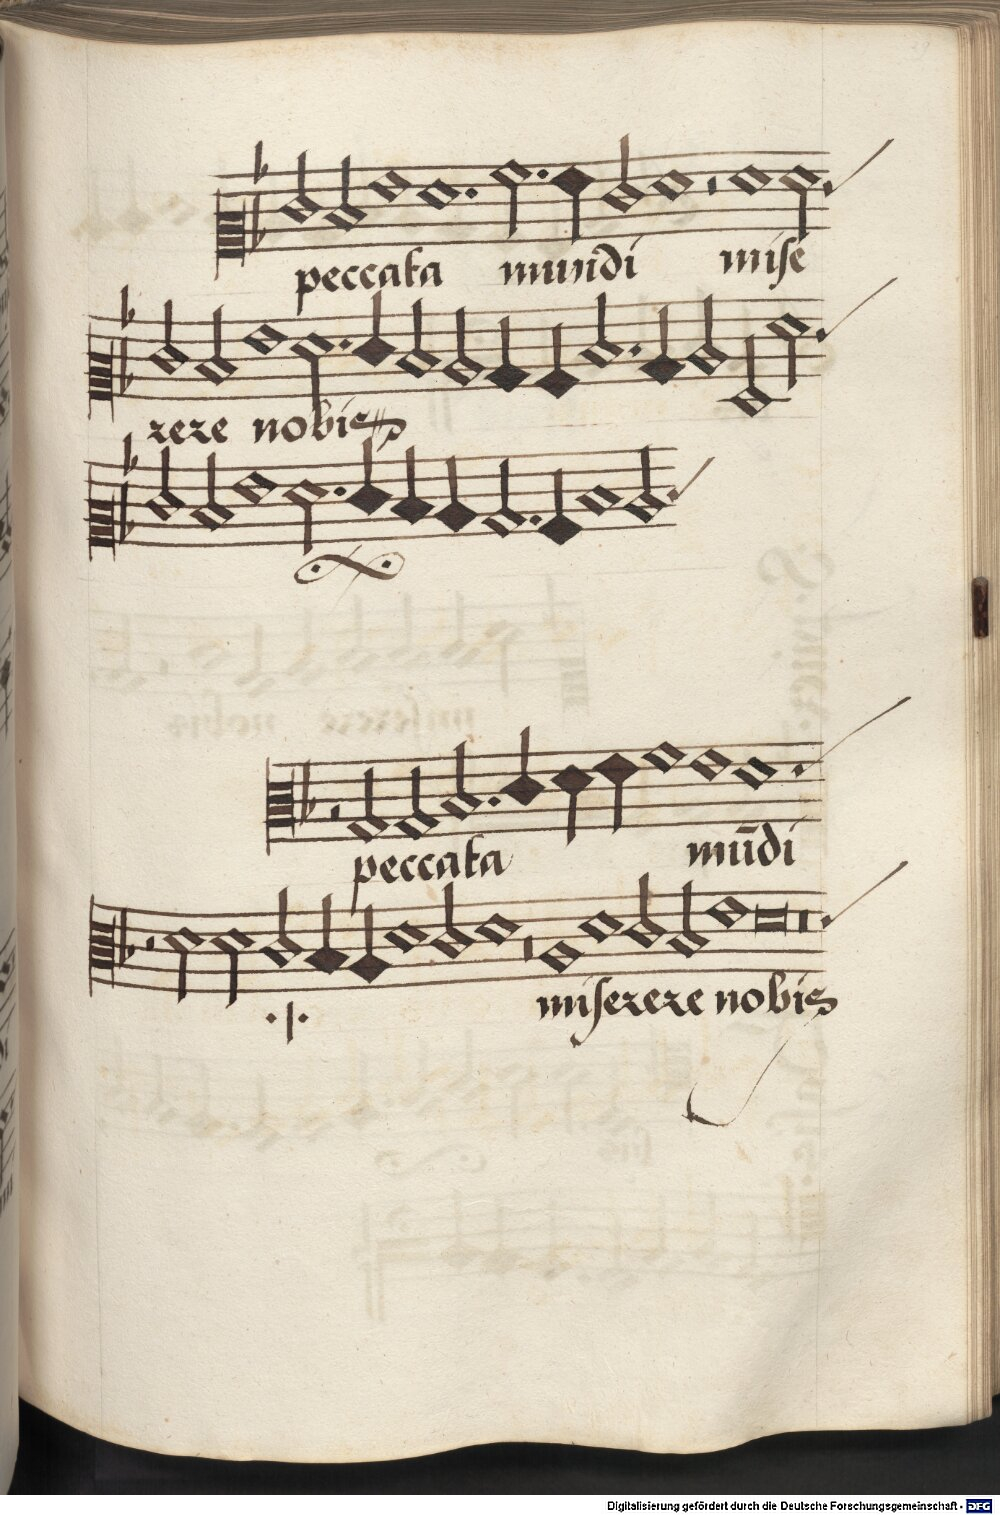 peccata mundi mise
rere nobis
peccata mūdi
miserere nobis
Digitalisierung gefördert durch die Deutsche Forschungsgemeinschaft - DFG